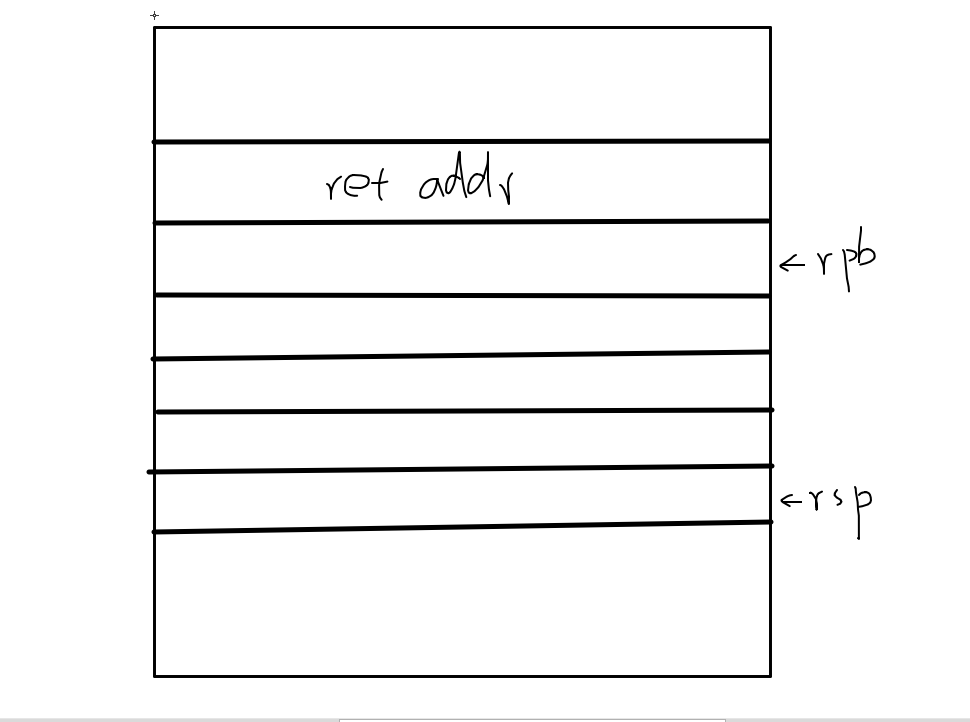 ret addr
← rpb
← rsp